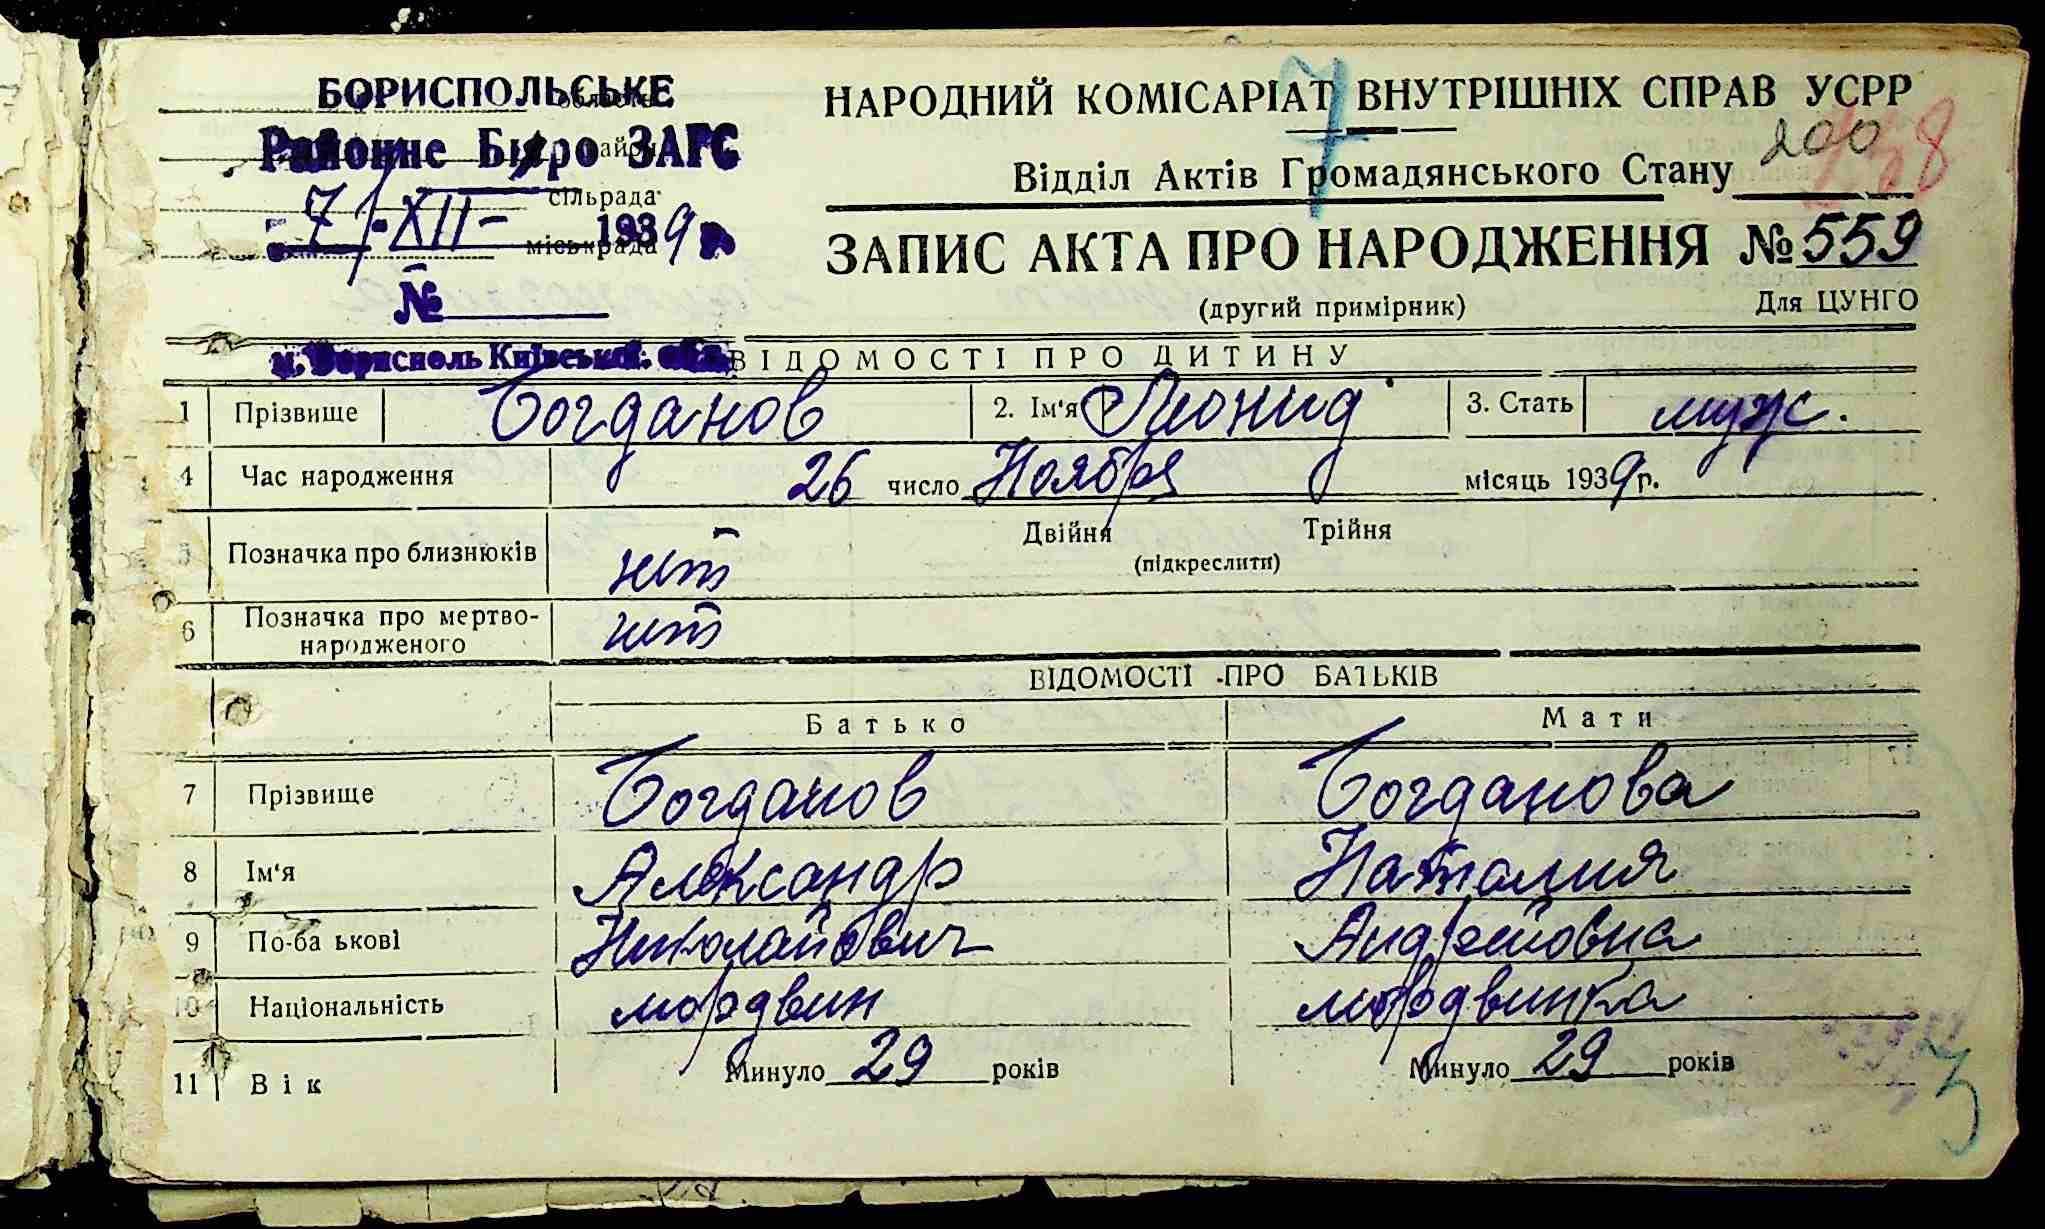 БОРИСПОЛЬСЬКЕ
Районне Бюро ЗАГС
сільрада
7/-XII- 1939 р.
міськрада
№
м. Бориспіль Київської обл.
НАРОДНИЙ КОМІСАРІАТ ВНУТРІШНІХ СПРАВ УСРР
7
Відділ Актів Громадянського Стану 200
ЗАПИС АКТА ПРО НАРОДЖЕННЯ № 559
(другий примірник) Для ЦУНГО
ВІДОМОСТІ ПРО ДИТИНУ
1 Прізвище Богданов 2. Ім'я Леонид 3. Стать муж.
4 Час народження 26 число Ноября місяць 1939 р.
5 Позначка про близнюків нет Двійня Трійня
(підкреслити)
6 Позначка про мертво-
народженого нет
ВІДОМОСТІ ПРО БАТЬКІВ
Батько Мати
7 Прізвище Богданов Богданова
8 Ім'я Александр Наталия
9 По-ба ькові Николайович Андреовна
10 Національність мордвин мордвинка
11 Вік Минуло 29 років Минуло 29 років
3